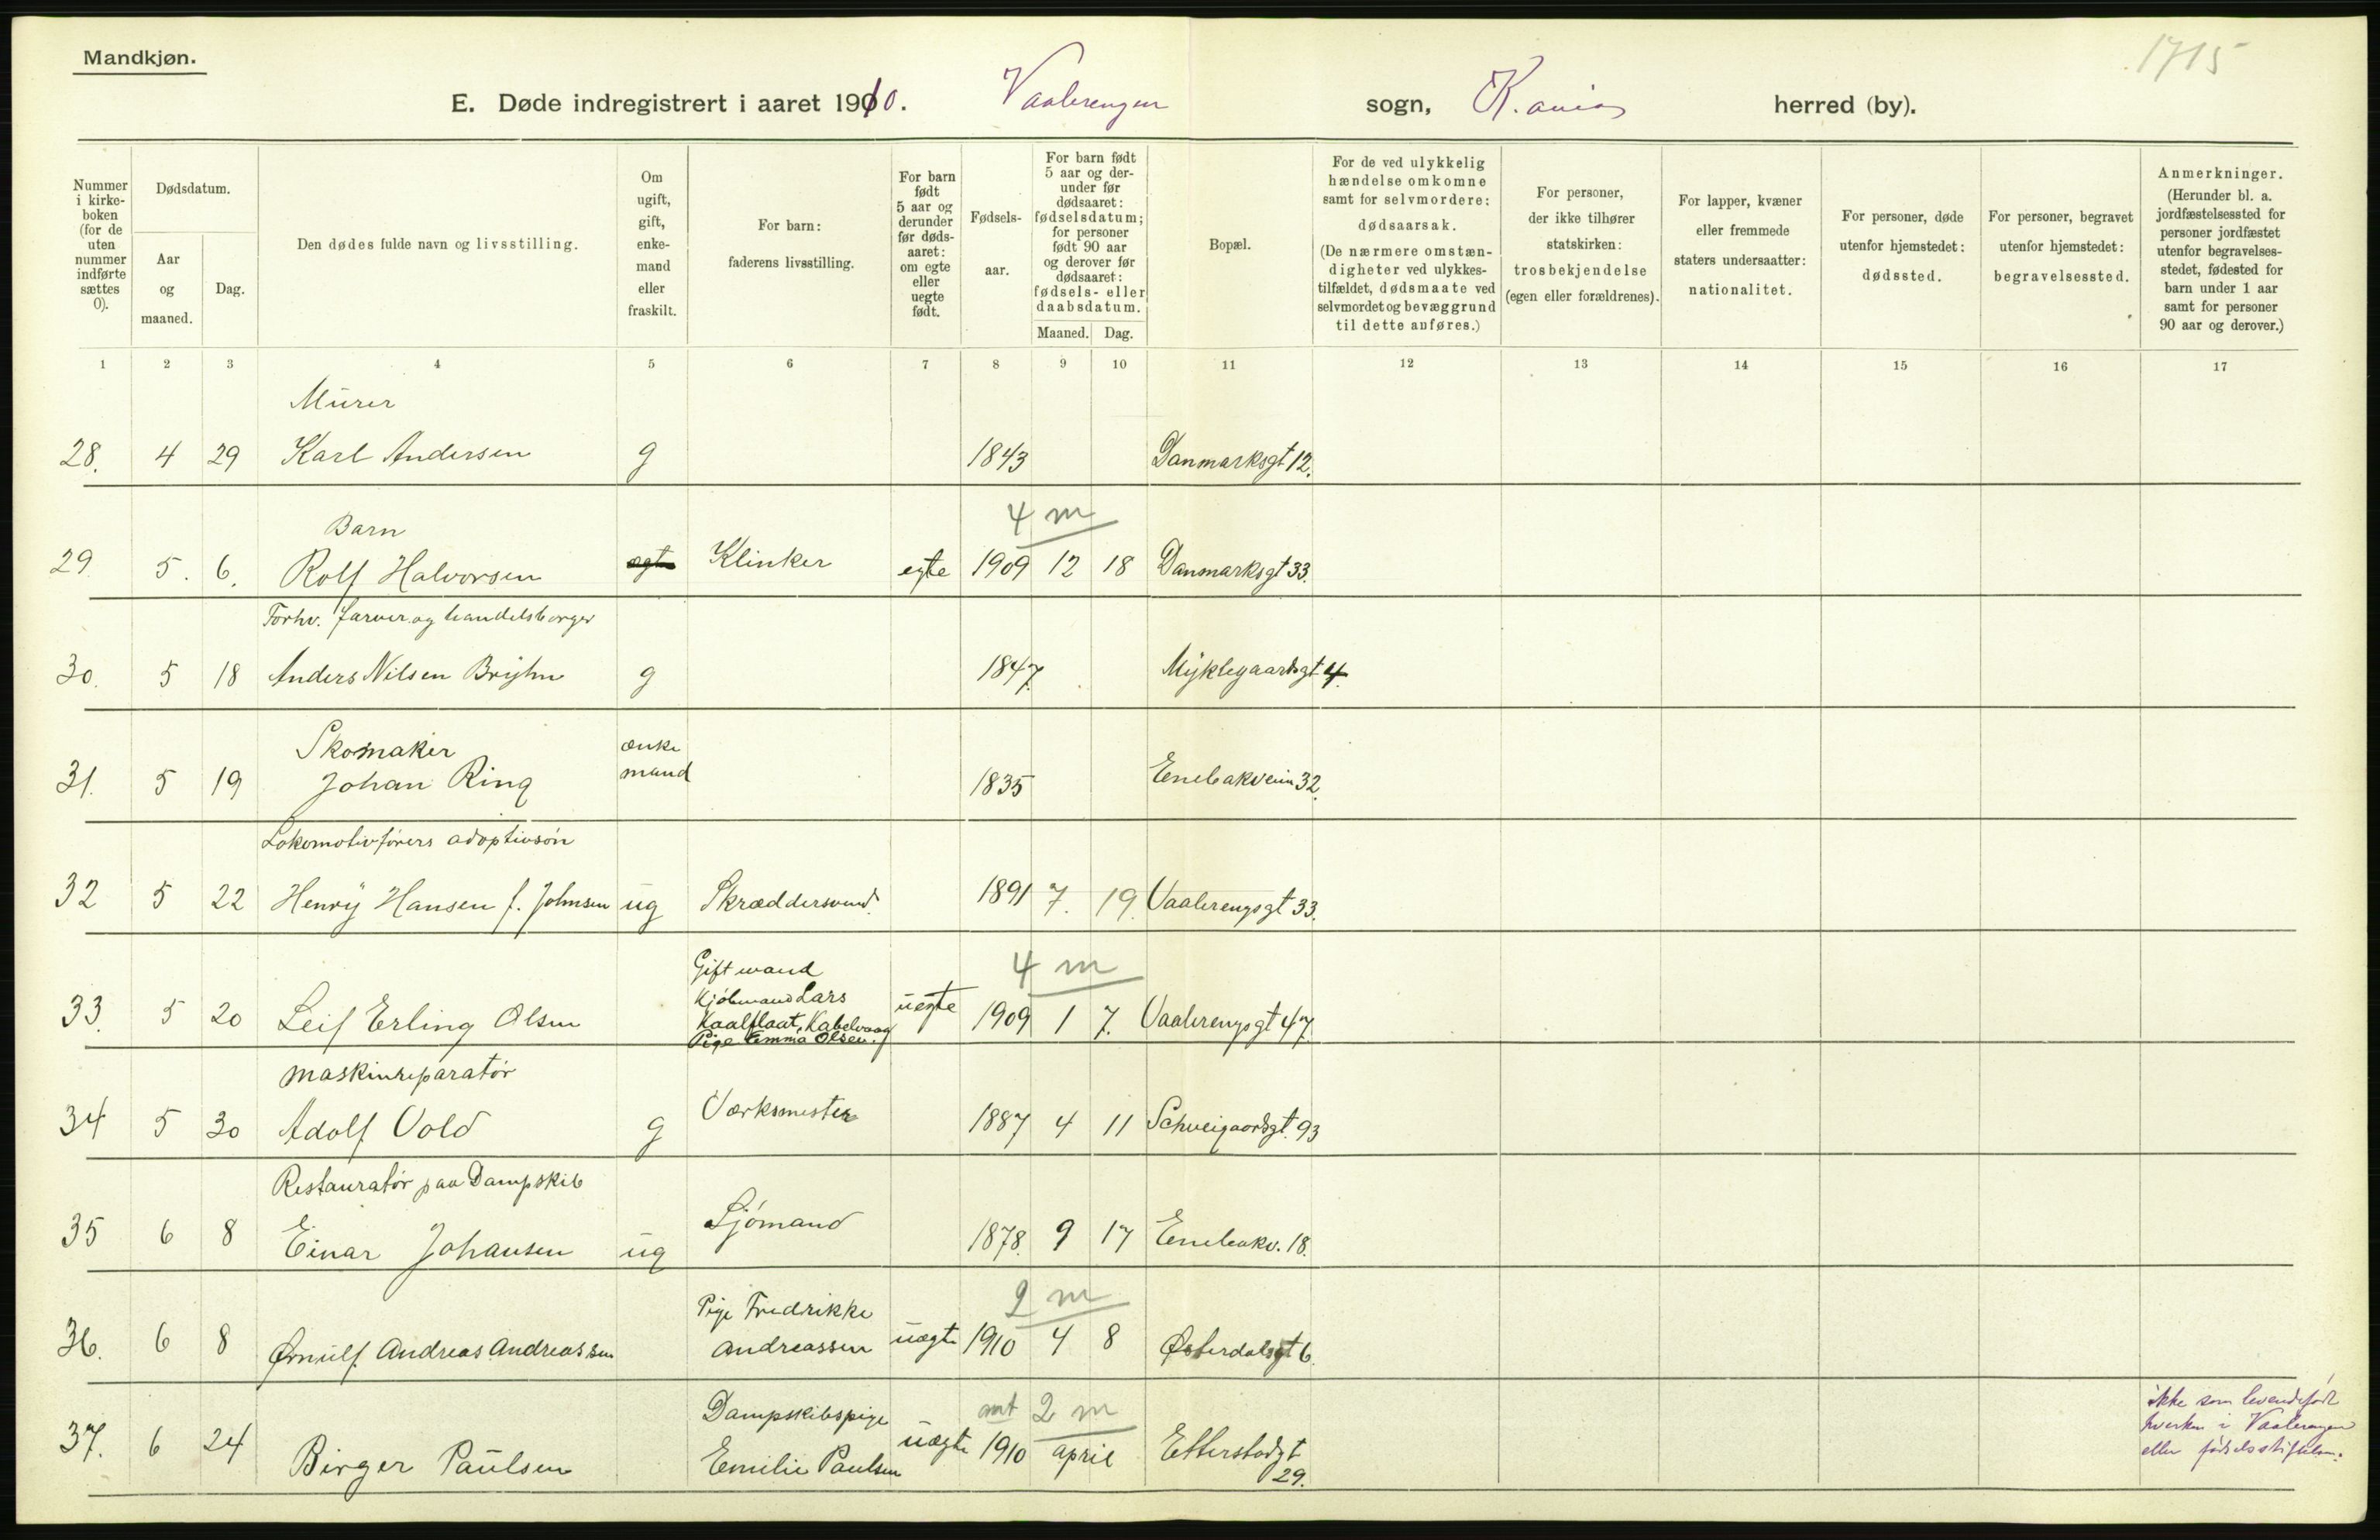 Mandkjøn.
1715
E. Døde indregistrert i aaret 1910. Vaalerengen sogn, K.ania herred (by).
Nummer i kirke-boken (for de uten nummer indførte sættes 0).
Dødsdatum.
Aar og maaned.
Dag.
Den dødes fulde navn og livsstilling.
Om ugift, gift, enke-mand eller fraskilt.
For barn: faderens livsstilling.
For barn født 5 aar og derunder før døds-aaret: om egte eller uegte født.
Fødsels-aar.
For barn født 5 aar og der-under før dødsaaret: fødselsdatum; for personer født 90 aar og derover før dødsaaret: fødsels- eller daabsdatum.
Maaned. Dag.
Bopæl.
For de ved ulykkelig hændelse omkomne samt for selvmordere: dødsaarsak. (De nærmere omstæn-digheter ved ulykkes-tilfældet, dødsmaate ved selvmordet og bevæggrund til dette anføres.)
For personer, der ikke tilhører statskirken: trosbekjendelse (egen eller forældrenes).
For lapper, kvæner eller fremmede staters undersaatter: nationalitet.
For personer, døde utenfor hjemstedet: dødssted.
For personer, begravet utenfor hjemstedet: begravelsessted.
Anmerkninger. (Herunder bl. a. jordfæstelsessted for personer jordfæstet utenfor begravelses-stedet, fødested for barn under 1 aar samt for personer 90 aar og derover.)
1 2 3 4 5 6 7 8 9 10 11 12 13 14 15 16 17
Murer
28. 4 29 Karl Andersen g 1843 Danmarksgt 12.
Barn 4 m
29. 5. 6. Rolf Halvorsen egte Klinker egte 1909 12 18 Danmarksgt 33.
Forhv. farver og handelsborger
30. 5 18 Anders Nilsen Bryhn g 1847. Myklegaardsgt 4.
Skomaker ænke
31. 5 19 Johan Ring mand 1835 Enebakveien 32.
Lokomotivførers adoptivsøn
32 5 22 Henry Hansen f. Johnsen ug Skræddersvend. 1891 7. 19. Vaalerengsgt 33.
Gift mand 4 m
Kjøbmand Lars
33. 5 20 Leif Erling Olsen Kaalflaat, Kabelvaag uegte 1909 1 7. Vaalerengsgt 47.
Pige Emma Olsen.
Maskinreparatør
34 5 30 Adolf Vold g Værksmester 1887 4 11 Schweigaardsgt. 93
Restauratør paa Dampskib
35 6 8 Einar Johansen ug Sjømand 1878. 9 17 Enebakv. 18.
Pige Fredrikke 2 m
36. 6 8 Ørnulf Andreas Andreassen Andreassen uægte 1910 4 8 Østerdalsgt 6.
Dampskibspige ant 2 m
37. 6 24 Birger Paulsen Emilie Paulsen uægte 1910 april Etterstadgt 29.
ikke som levendefødt
hverken i Vaalerengen
eller fødselsstiftelsen.